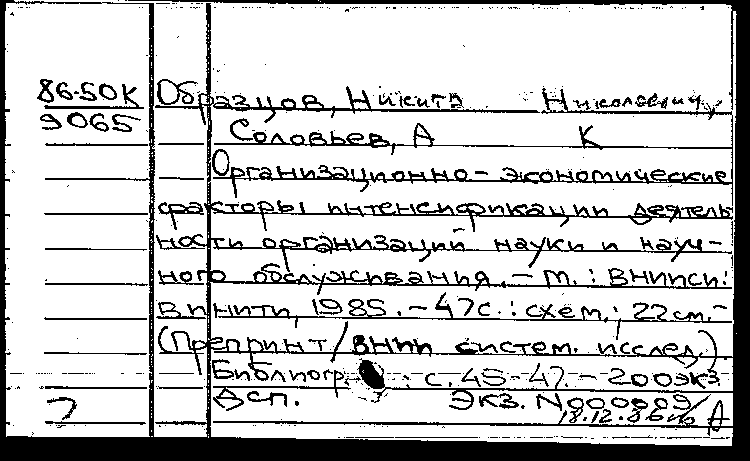 86-50К
9065
Образцов, Никита Николаевич,
Соловьев, А К
Организационно-экономические
факторы интенсификации деятель
ности организаций науки и науч-
ного обслуживания. - М. : ВНИИСИ:
ВИНИТИ, 1985. - 47с. : схем.; 22см. -
(Препринт/ВНИИ систем. исслед.)
Библиогр. : с. 45-47. - 200экз.
Дсп. Экз. N000009
18.12.86